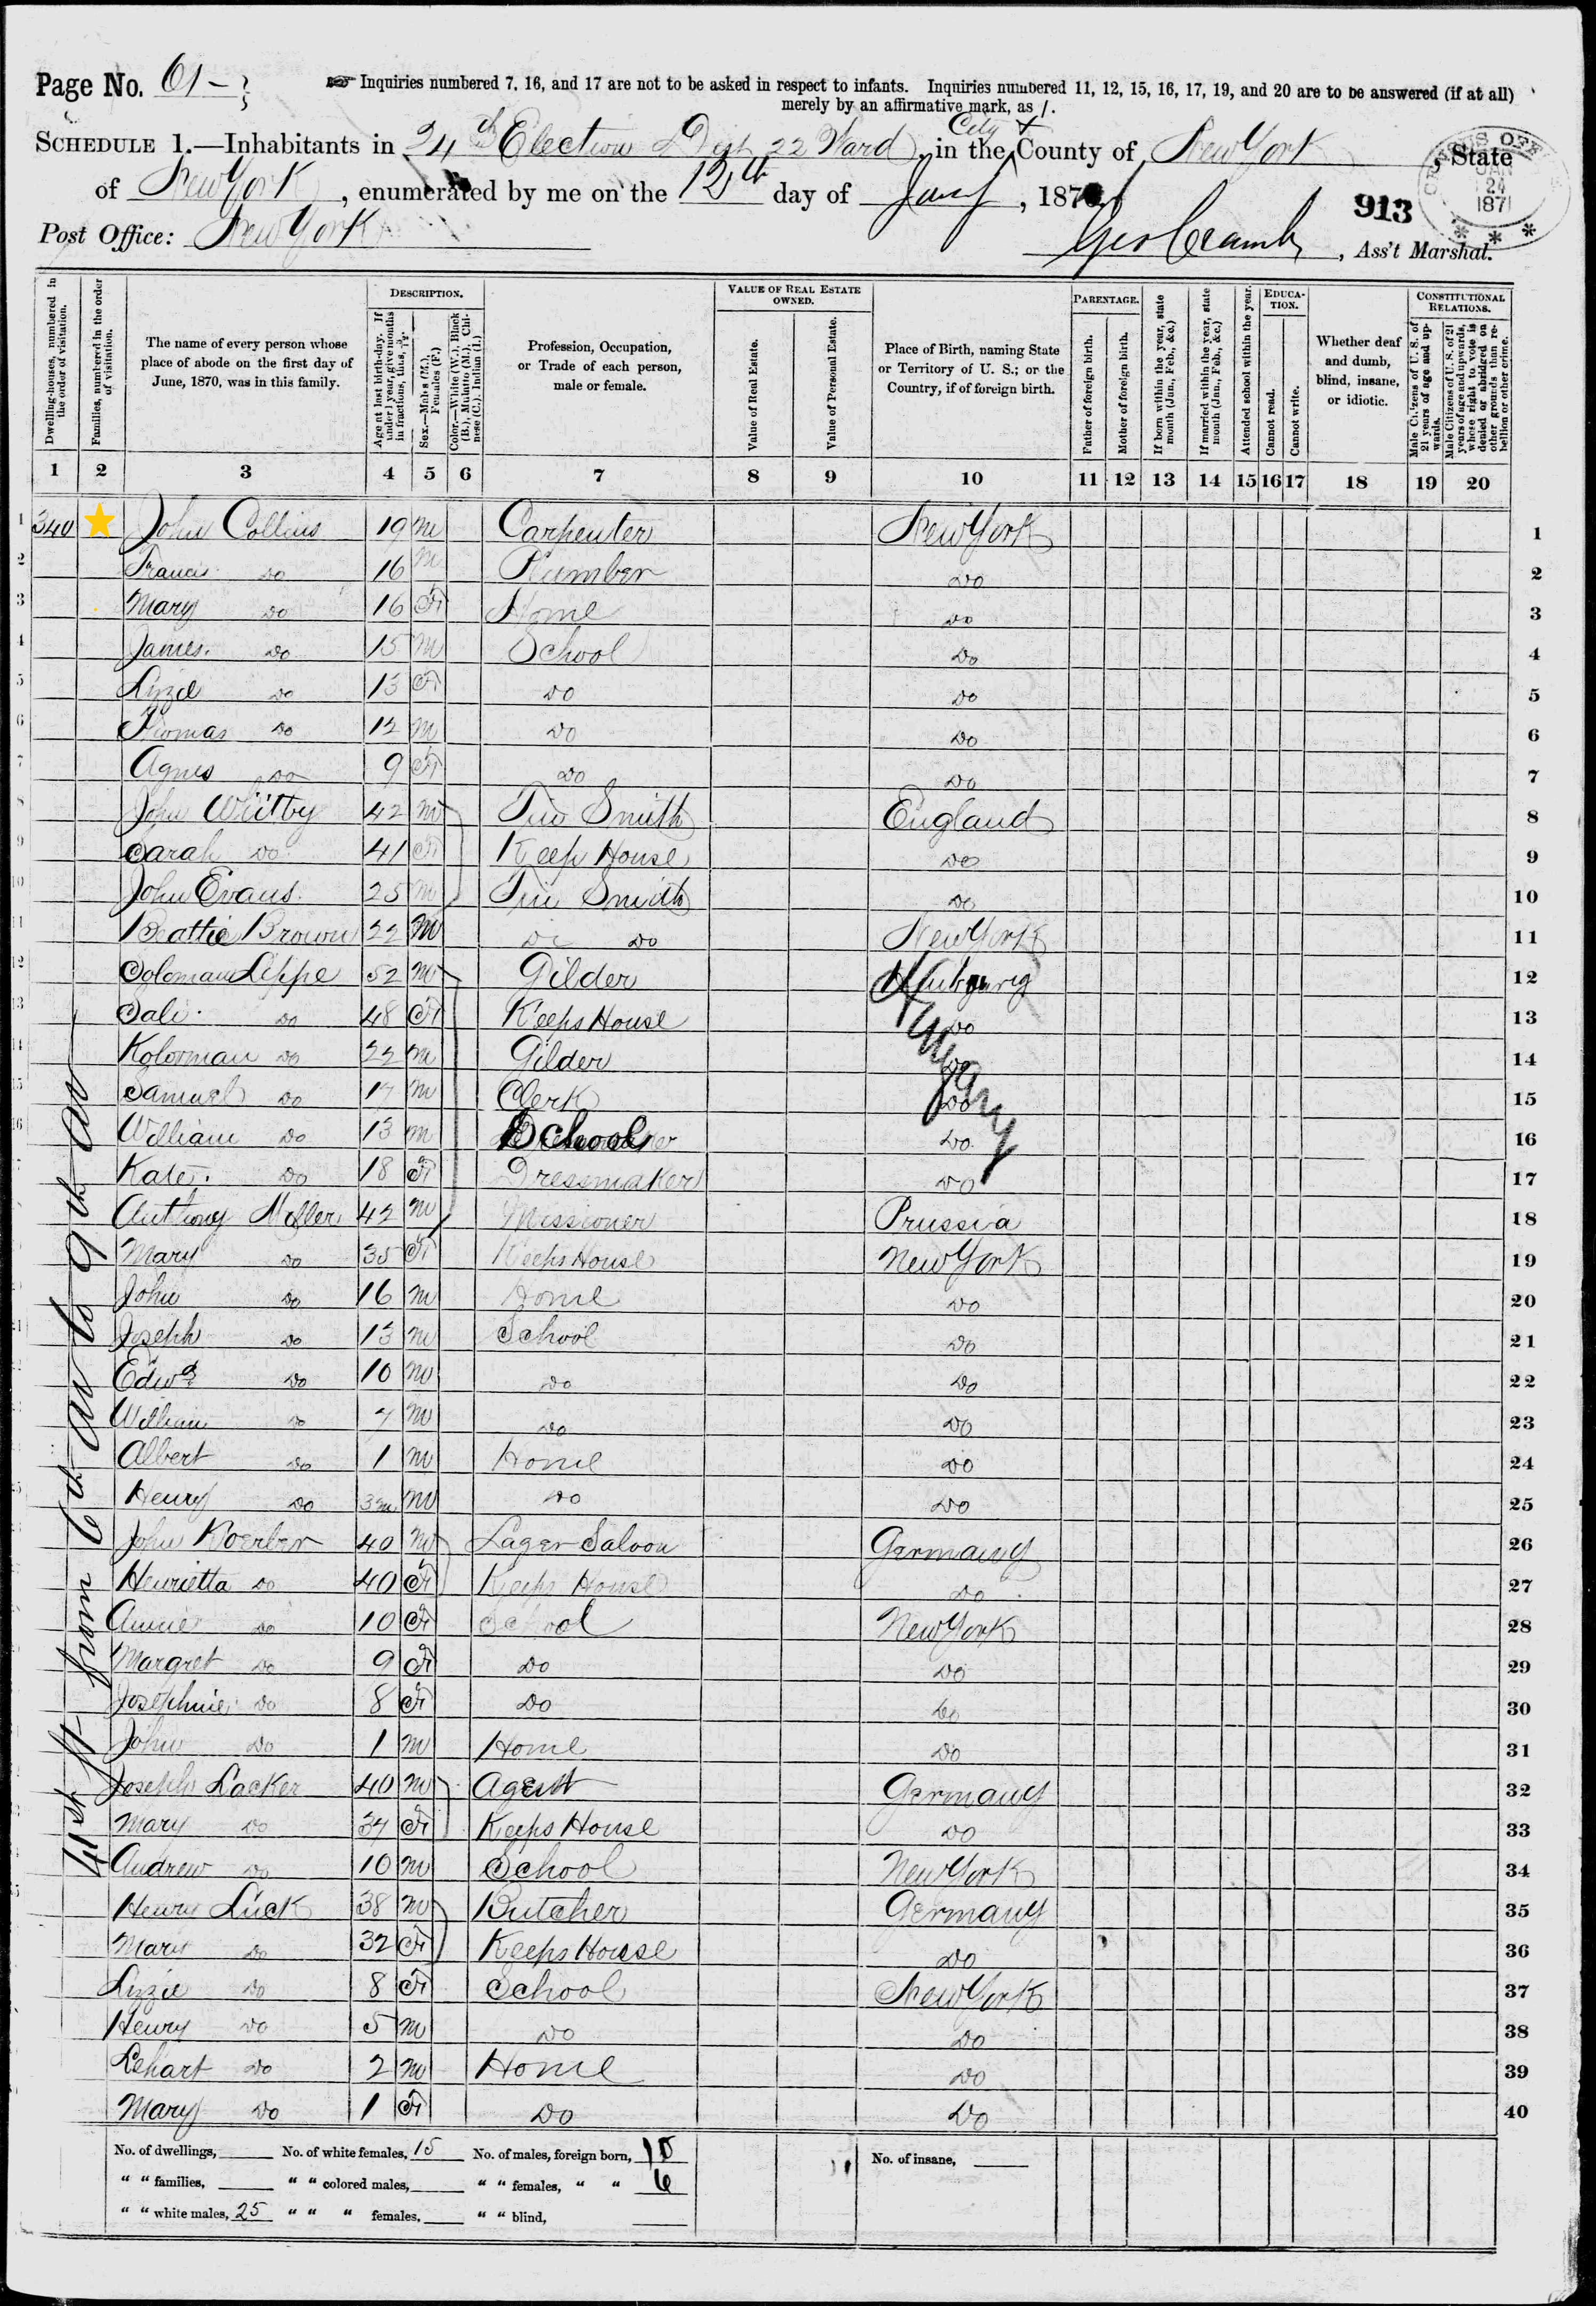 Page No. 61
Inquiries numbered 7, 16, and 17 are not to be asked in respect to infants. Inquiries numbered 11, 12, 15, 16, 17, 19, and 20 are to be answered (if at all)
merely by an affirmative mark, as /.
City +
SCHEDULE 1.—Inhabitants in 24th Election Dist 22 Ward, in the County of New York, State
of New York, enumerated by me on the 12th day of Jany, 1871
913
JAN 24 1871
Post Office: New York
Geo Cramb, Ass't Marshal.
Dwelling-houses, numbered in the order of visitation.
Families, numbered in the order of visitation.
The name of every person whose place of abode on the first day of June, 1870, was in this family.
DESCRIPTION.
Age at last birth-day. If under 1 year, give months in fractions, thus, 3/12.
Sex.—Males (M.), Females (F.)
Color.—White (W.), Black (B.), Mulatto (M.), Chinese (C.), Indian (I.)
Profession, Occupation, or Trade of each person, male or female.
VALUE OF REAL ESTATE OWNED.
Value of Real Estate.
Value of Personal Estate.
Place of Birth, naming State or Territory of U. S.; or the Country, if of foreign birth.
PARENTAGE.
Father of foreign birth.
Mother of foreign birth.
If born within the year, state month (Jan., Feb., &c.)
If married within the year, state month (Jan., Feb., &c.)
Attended school within the year.
EDUCATION.
Cannot read.
Cannot write.
Whether deaf and dumb, blind, insane, or idiotic.
CONSTITUTIONAL RELATIONS.
Male Citizens of U. S. of 21 years of age and upwards.
Male Citizens of U. S. of 21 years of age and upwards, whose right to vote is denied or abridged on other grounds than rebellion or other crime.
1 2 3 4 5 6 7 8 9 10 11 12 13 14 15 16 17 18 19 20
1 340 John Collins 19 m Carpenter New York 1
2 Francis do 16 m Plumber do 2
3 Mary do 16 F Home do 3
4 James do 15 m School do 4
5 Lizzie do 13 F do do 5
6 Thomas do 12 m do do 6
7 Agnes do 9 F do do 7
8 John Whitby 42 m Tin Smith England 8
9 Sarah do 41 F Keep House do 9
10 John Evans 25 m Tin Smith do 10
11 Beattie Brown 22 m do do New York 11
12 Soloman Leppe 52 m Gilder Hungary 12
13 Sali do 48 F Keeps House do 13
14 Koloman do 22 m Gilder do 14
15 Samuel do 17 m Clerk do 15
16 William do 13 m School do 16
Kate do 18 F Dressmaker do 17
Anthony Miller 42 m Missioner Prussia 18
Mary do 35 F Keeps House New York 19
John do 16 m Home do 20
Joseph do 13 m School do 21
Edwd do 10 m do do 22
William do 7 m do do 23
Albert do 1 m Home do 24
Henry do 3m m do do 25
John Koerber 40 m Lager Saloon Germany 26
Henrietta do 40 F Keeps House do 27
Annie do 10 F School New York 28
Margret do 9 F do do 29
Josephine do 8 F do do 30
John do 1 m Home do 31
Joseph Lacker 40 m Agent Germany 32
Mary do 34 F Keeps House do 33
Andrew do 10 m School New York 34
Henry Luck 38 m Butcher Germany 35
Mary do 32 F Keeps House do 36
Lizzie do 8 F School New York 37
Henry do 5 m do do 38
Lehart do 2 m Home do 39
Mary do 1 F do do 40
41st St from 6th av to 9th av
No. of dwellings, No. of white females, 15 No. of males, foreign born, 10 No. of insane,
" " families, " " colored males, " " females, " " 6
" " white males, 25 " " " females, " " blind,